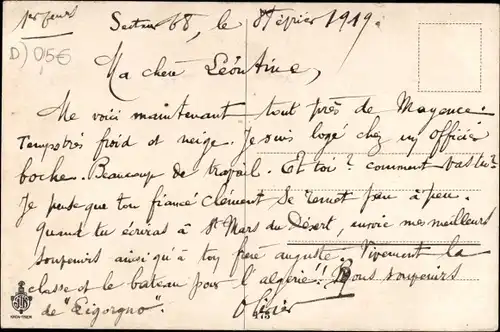 1er jeurs
D) 0,5€
Secteur 68, le 8 février 1919.
Ma chère Léontine,
Me voici maintenant tout près de Mayence.
Temps très froid et neige. Je suis logé chez un officier
boche. Beaucoup de travail. Et toi? comment vas tu?
Je pense que ton fiancé Clément se remet peu à peu.
Quand tu écriras à St Mars du Désert, envoie mes meilleurs
souvenirs ainsi qu'à ton frère auguste. Vivement la
classe et le bateau pour l'algérie!! Bons souvenirs
de "Gigorgno". Olivier